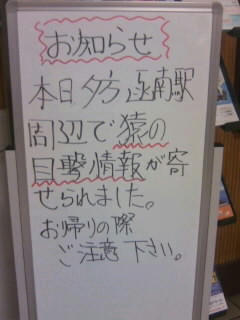 お知らせ
本日夕方函南駅
周辺で猿の
目撃情報が寄
せられました。
お帰りの際
ご注意下さい。